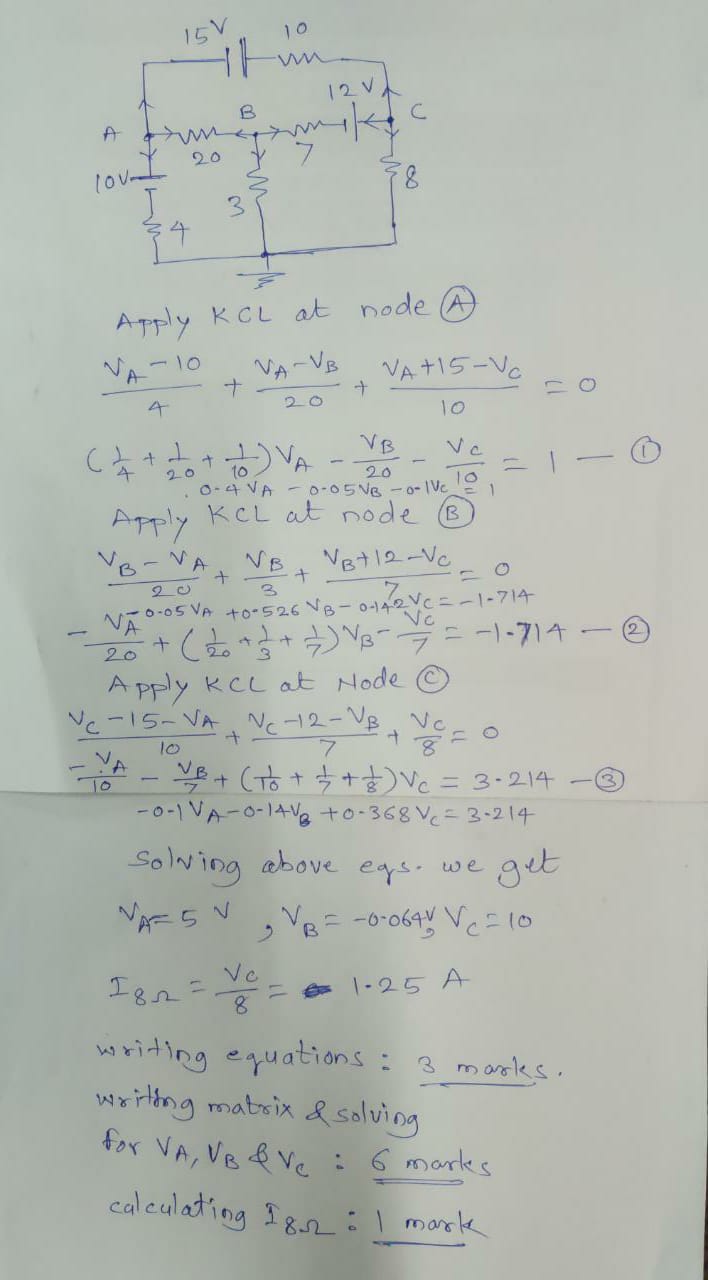 15V 10
12 V
A B C
20 7
10V 3 8
4
Apply KCL at node Ⓐ
(VA-10)/4 + (VA-VB)/20 + (VA+15-VC)/10 = 0
(1/4 + 1/20 + 1/10) VA - VB/20 - VC/10 = 1 — ①
0.4 VA - 0.05 VB - 0.1 VC = 1
Apply KCL at node Ⓑ
(VB-VA)/20 + VB/3 + (VB+12-VC)/7 = 0
-0.05 VA + 0.526 VB - 0.142 VC = -1.714
-VA/20 + (1/20 + 1/3 + 1/7) VB - VC/7 = -1.714 — ②
Apply KCL at Node Ⓒ
(VC-15-VA)/10 + (VC-12-VB)/7 + VC/8 = 0
-VA/10 - VB/7 + (1/10 + 1/7 + 1/8) VC = 3.214 — ③
-0.1 VA - 0.14 VB + 0.368 VC = 3.214
Solving above eqs. we get
VA = 5 V, VB = -0.064V, VC = 10
I8Ω = VC/8 = 1.25 A
writing equations : 3 marks.
writing matrix & solving
for VA, VB & VC : 6 marks
calculating I8Ω : 1 mark